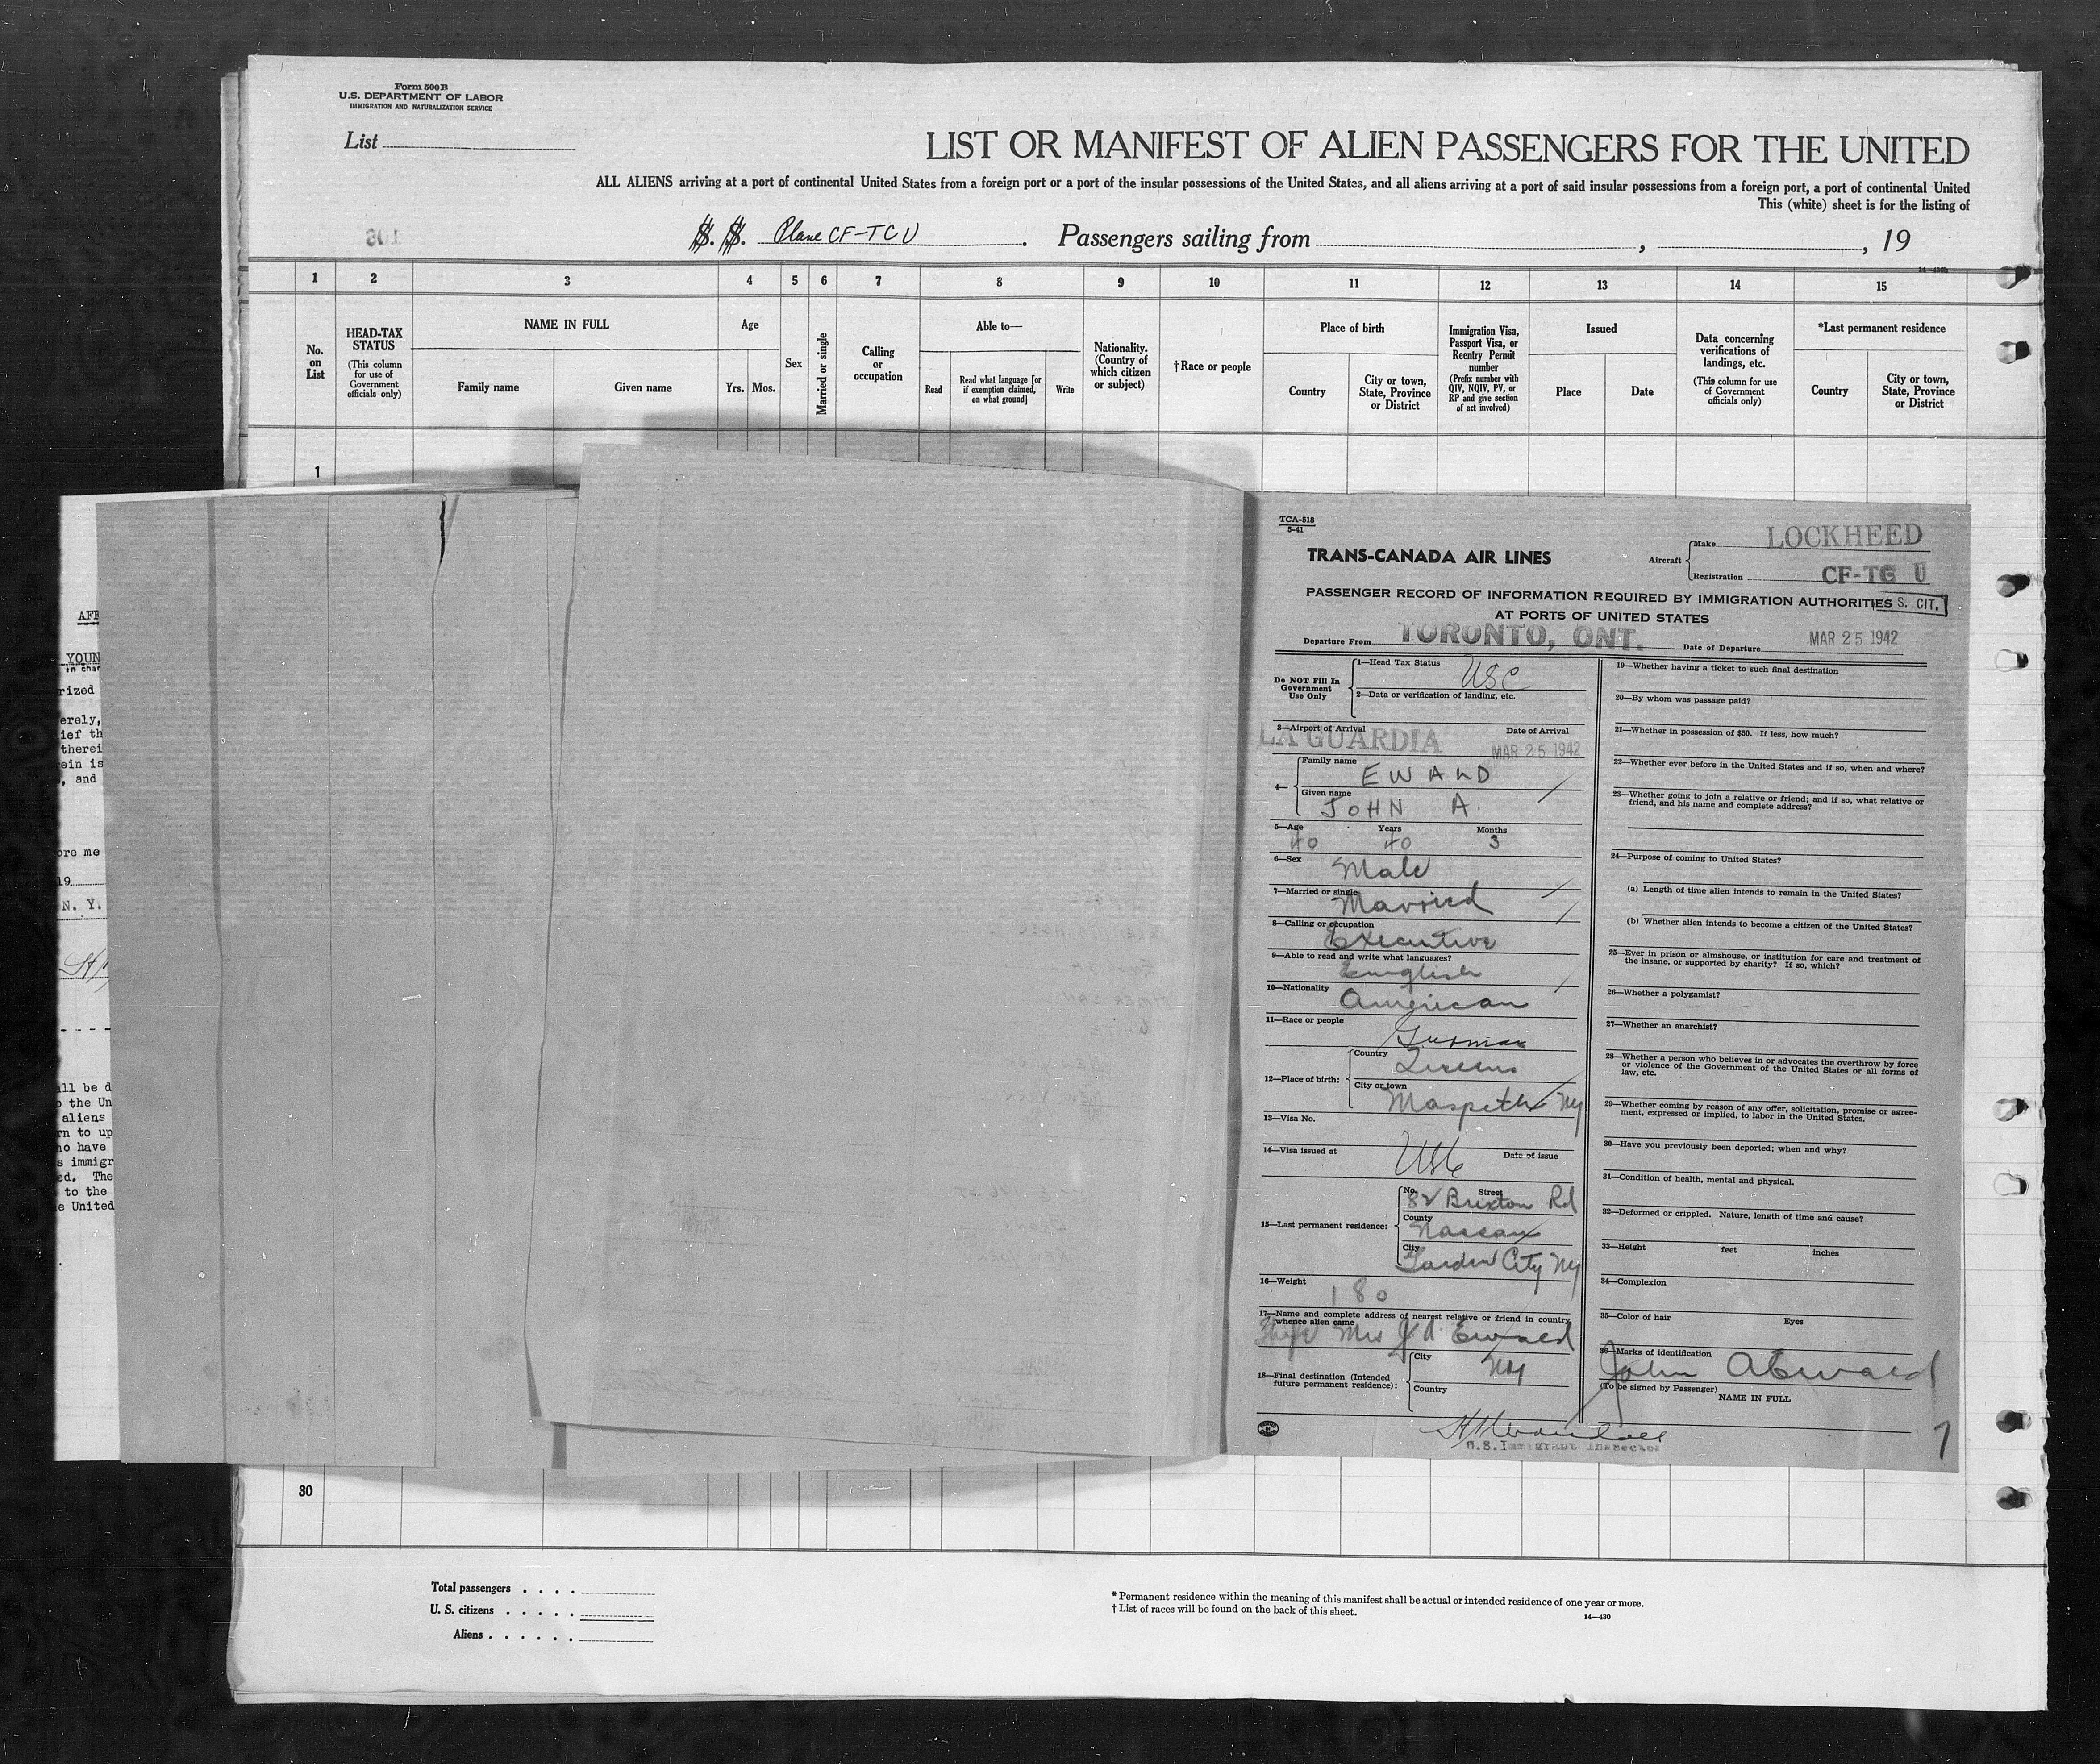 Form 500B
U.S. DEPARTMENT OF LABOR
IMMIGRATION AND NATURALIZATION SERVICE
List
LIST OR MANIFEST OF ALIEN PASSENGERS FOR THE UNITED
ALL ALIENS arriving at a port of continental United States from a foreign port or a port of the insular possessions of the United States, and all aliens arriving at a port of said insular possessions from a foreign port, a port of continental United
This (white) sheet is for the listing of
S. S. Plane CF-TCU . Passengers sailing from , , 19
14—430b
1 2 3 4 5 6 7 8 9 10 11 12 13 14 15
No. on List
HEAD-TAX STATUS
(This column for use of Government officials only)
NAME IN FULL
Family name
Given name
Age
Yrs. Mos.
Sex
Married or single
Calling or occupation
Able to—
Read
Read what language [or if exemption claimed, on what ground]
Write
Nationality. (Country of which citizen or subject)
†Race or people
Place of birth
Country
City or town, State, Province or District
Immigration Visa, Passport Visa, or Reentry Permit number
(Prefix number with QIV, NQIV, PV, or RP and give section of act involved)
Issued
Place
Date
Data concerning verifications of landings, etc.
(This column for use of Government officials only)
*Last permanent residence
Country
City or town, State, Province or District
1
AFF
YOUN
in char
rized
erely,
ief th
therei
ein is
, and
ore me
19
N. Y.
all be d
o the Un
aliens
rn to up
ho have
s immigr
ed. The
to the
e United
TCA-518
5-41
TRANS-CANADA AIR LINES
Aircraft
Make LOCKHEED
Registration CF-TC U
PASSENGER RECORD OF INFORMATION REQUIRED BY IMMIGRATION AUTHORITIES
S. CIT.
AT PORTS OF UNITED STATES
Departure From TORONTO, ONT. Date of Departure MAR 25 1942
Do NOT Fill In Government Use Only
1—Head Tax Status USC
2—Data or verification of landing, etc.
3—Airport of Arrival Date of Arrival
LA GUARDIA MAR 25 1942
4— Family name EWALD
Given name JOHN A.
5—Age Years Months
40 40 3
6—Sex Male
7—Married or single Married
8—Calling or occupation Executive
9—Able to read and write what languages? English
10—Nationality American
11—Race or people German
12—Place of birth: Country Queens
City or town Maspeth NY
13—Visa No.
14—Visa issued at USC Date of issue
15—Last permanent residence: No. Street 82 Brixton Rd
County Nassau
City Garden City NY
16—Weight 180
17—Name and complete address of nearest relative or friend in country whence alien came
Mrs J A Ewald
18—Final destination (Intended future permanent residence): City NY
Country
19—Whether having a ticket to such final destination
20—By whom was passage paid?
21—Whether in possession of $50. If less, how much?
22—Whether ever before in the United States and if so, when and where?
23—Whether going to join a relative or friend; and if so, what relative or friend, and his name and complete address?
24—Purpose of coming to United States?
(a) Length of time alien intends to remain in the United States?
(b) Whether alien intends to become a citizen of the United States?
25—Ever in prison or almshouse, or institution for care and treatment of the insane, or supported by charity? If so, which?
26—Whether a polygamist?
27—Whether an anarchist?
28—Whether a person who believes in or advocates the overthrow by force or violence of the Government of the United States or all forms of law, etc.
29—Whether coming by reason of any offer, solicitation, promise or agreement, expressed or implied, to labor in the United States.
30—Have you previously been deported; when and why?
31—Condition of health, mental and physical.
32—Deformed or crippled. Nature, length of time and cause?
33—Height feet inches
34—Complexion
35—Color of hair Eyes
36—Marks of identification
John A Ewald
(To be signed by Passenger)
NAME IN FULL
U.S. Immigrant Inspector
30
Total passengers . . . .
U. S. citizens . . . . .
Aliens . . . . . .
* Permanent residence within the meaning of this manifest shall be actual or intended residence of one year or more.
† List of races will be found on the back of this sheet.
14—430